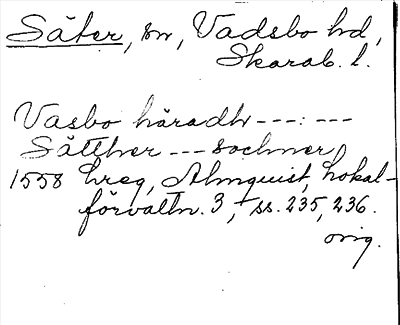 Säter, sn, Vadsbo hd,
Skarab. l.
Vasbo häradh ---:---
Sätther --- sochner,
1558 hreg, Almquist, Lokal-
förvaltn. 3, ss. 235, 236.
orig.